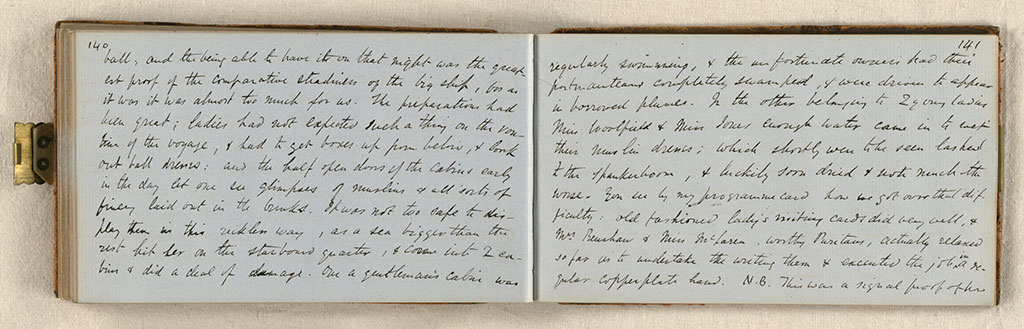 140
ball; and the being able to have it on that night was the great-
est proof of the comparative steadiness of the big ship, for as
it was it was almost too much for us. The preparations had
been great; ladies had not expected such a thing on the rou-
tine of the voyage, & had to get boxes up from below, & look
out ball dresses: and the half open doors of the cabins early
in the day let one see glimpses of muslins & all sorts of
finery laid out in the bunks. It was not too safe to dis-
play them in this reckless way, as a sea bigger than the
rest hit her on the starboard quarter, & came into 2 ca-
bins & did a deal of damage. One a gentleman's cabin was
141
regularly swimming, & the unfortunate owners had their
portmanteaus completely swamped, & were driven to appear
in borrowed plumes. In the other belonging to 2 young ladies
Miss Woolfield & Miss Jones enough water came in to wet
their muslin dresses; which shortly were to be seen lashed
to the spankerboom, & luckily soon dried & not much the
worse. You see by my programme card how we got over that dif-
ficulty: old fashioned lady's visiting cards did very well, &
Mrs Renshaw & Miss McLaren, worthy Puritans, actually relaxed
so far as to undertake the writing them & executed the job in re-
gular copperplate hand. N.B. This was a signal proof of